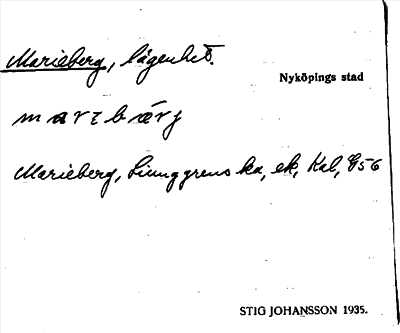 Marieberg, lägenhet.
Nyköpings stad
maribärj
Marieberg, Liunggrens ka, ek, Kal, G56
STIG JOHANSSON 1935.